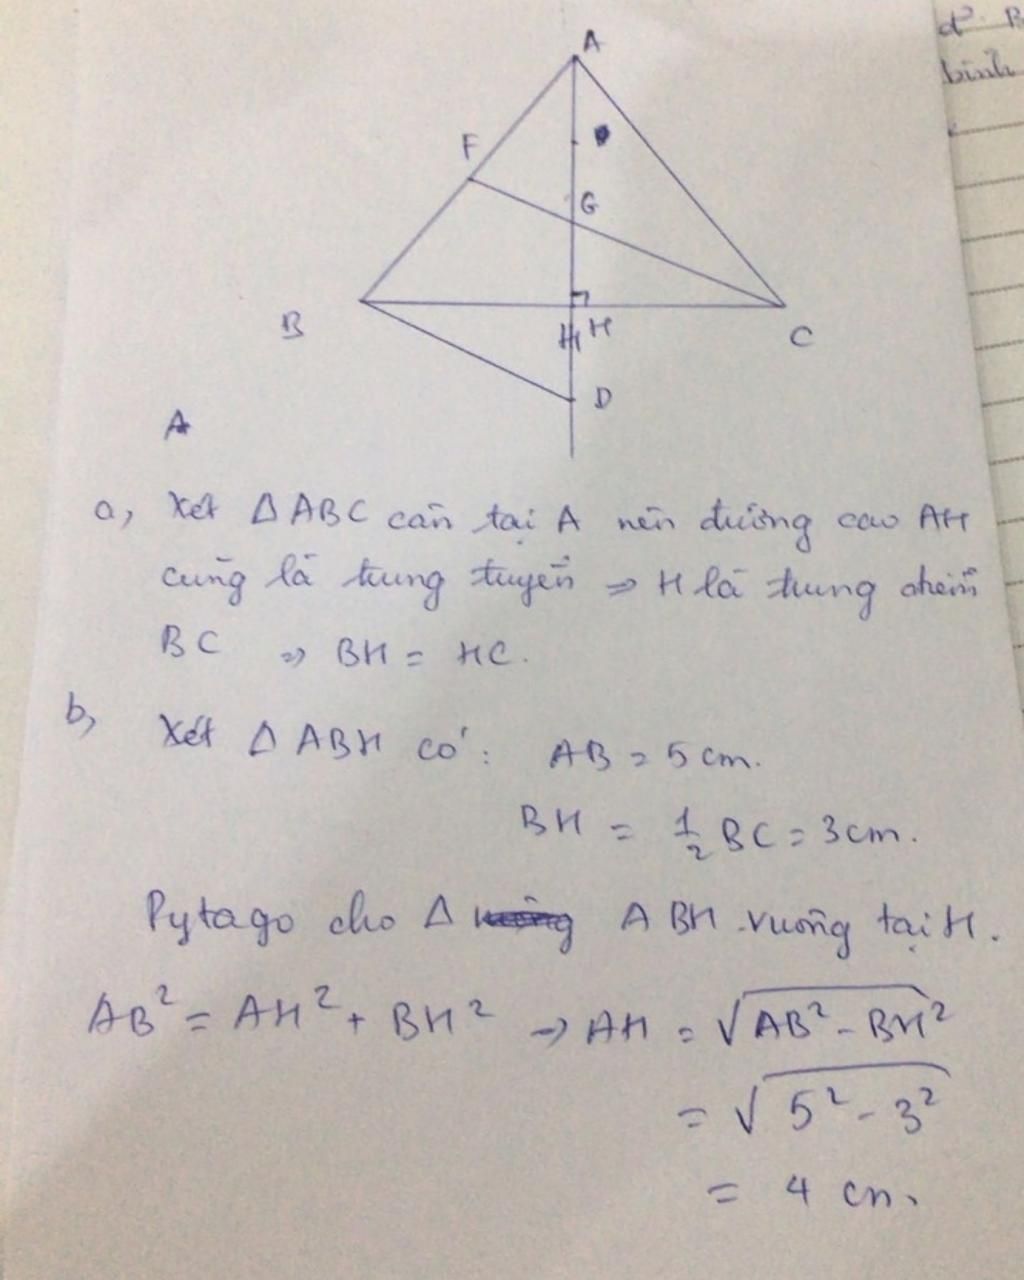 A
F
G
B
H
C
D
A
a, Xét △ABC cân tại A nên đường cao AH
cũng là trung tuyến ⇒ H là trung điểm
BC ⇒ BH = HC.
b, Xét △ABH có: AB = 5 cm.
BH = 1/2 BC = 3 cm.
Pytago cho △ ABH vuông tại H.
AB² = AH² + BH² → AH = √(AB² - BH²)
= √(5² - 3²)
= 4 cm.